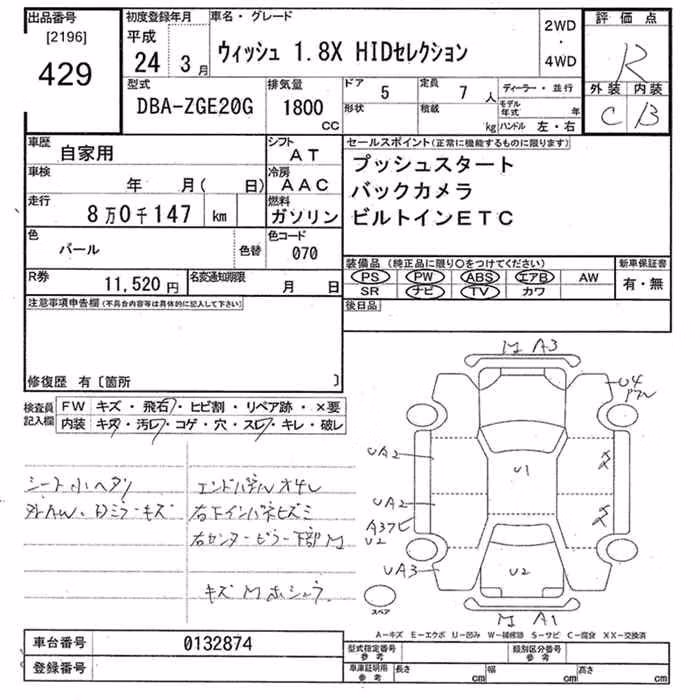 出品番号 初度登録年月 車名・グレード 評価点
[2196] 平成 2WD
429 24 3月 ウィッシュ 1.8X HIDセレクション ・ R
4WD
型式 排気量 ドア 5 定員 7人 ディーラー・並行 外装 内装
DBA-ZGE20G 1800 CC 形状 積載 kg モデル年式 年 C B
ハンドル 左・右
車歴 自家用 シフト AT セールスポイント(正常に機能するものに限ります)
プッシュスタート
車検 年 月( 日) 冷房 AAC バックカメラ
走行 8万0千147 km 燃料 ガソリン ビルトインETC
色 パール 色替 色コード 070
装備品 (純正品に限り○をつけてください) 新車保証書
R券 11,520円 名変通知期限 月 日 PS PW ABS エアB AW 有・無
SR ナビ TV カワ
注意事項申告欄(不具合内容等は具体的に記入して下さい) 後日品
修復歴 有〔箇所 〕
検査員記入欄 FW キズ・飛石・ヒビ割・リペア跡・×要
内装 キズ・汚レ・コゲ・穴・スレ・キレ・破レ
シート小ヘタリ エンドパネルオサレ
外AW、Dミラーキズ 右下インパネヒズミ
右センターピラー下部M
キズMホシュウ
M A3
U4
UA2
U1
UA2
A37ヒ
U2
UA3 U2
スペア
M A1
A-キズ E-エクボ U-凹み W-補修跡 S-サビ C-腐食 XX-交換済
車台番号 0132874 型式指定番号参考 類別区分番号参考
登録番号 車庫証明用参考 長さ cm 幅 cm 高さ cm